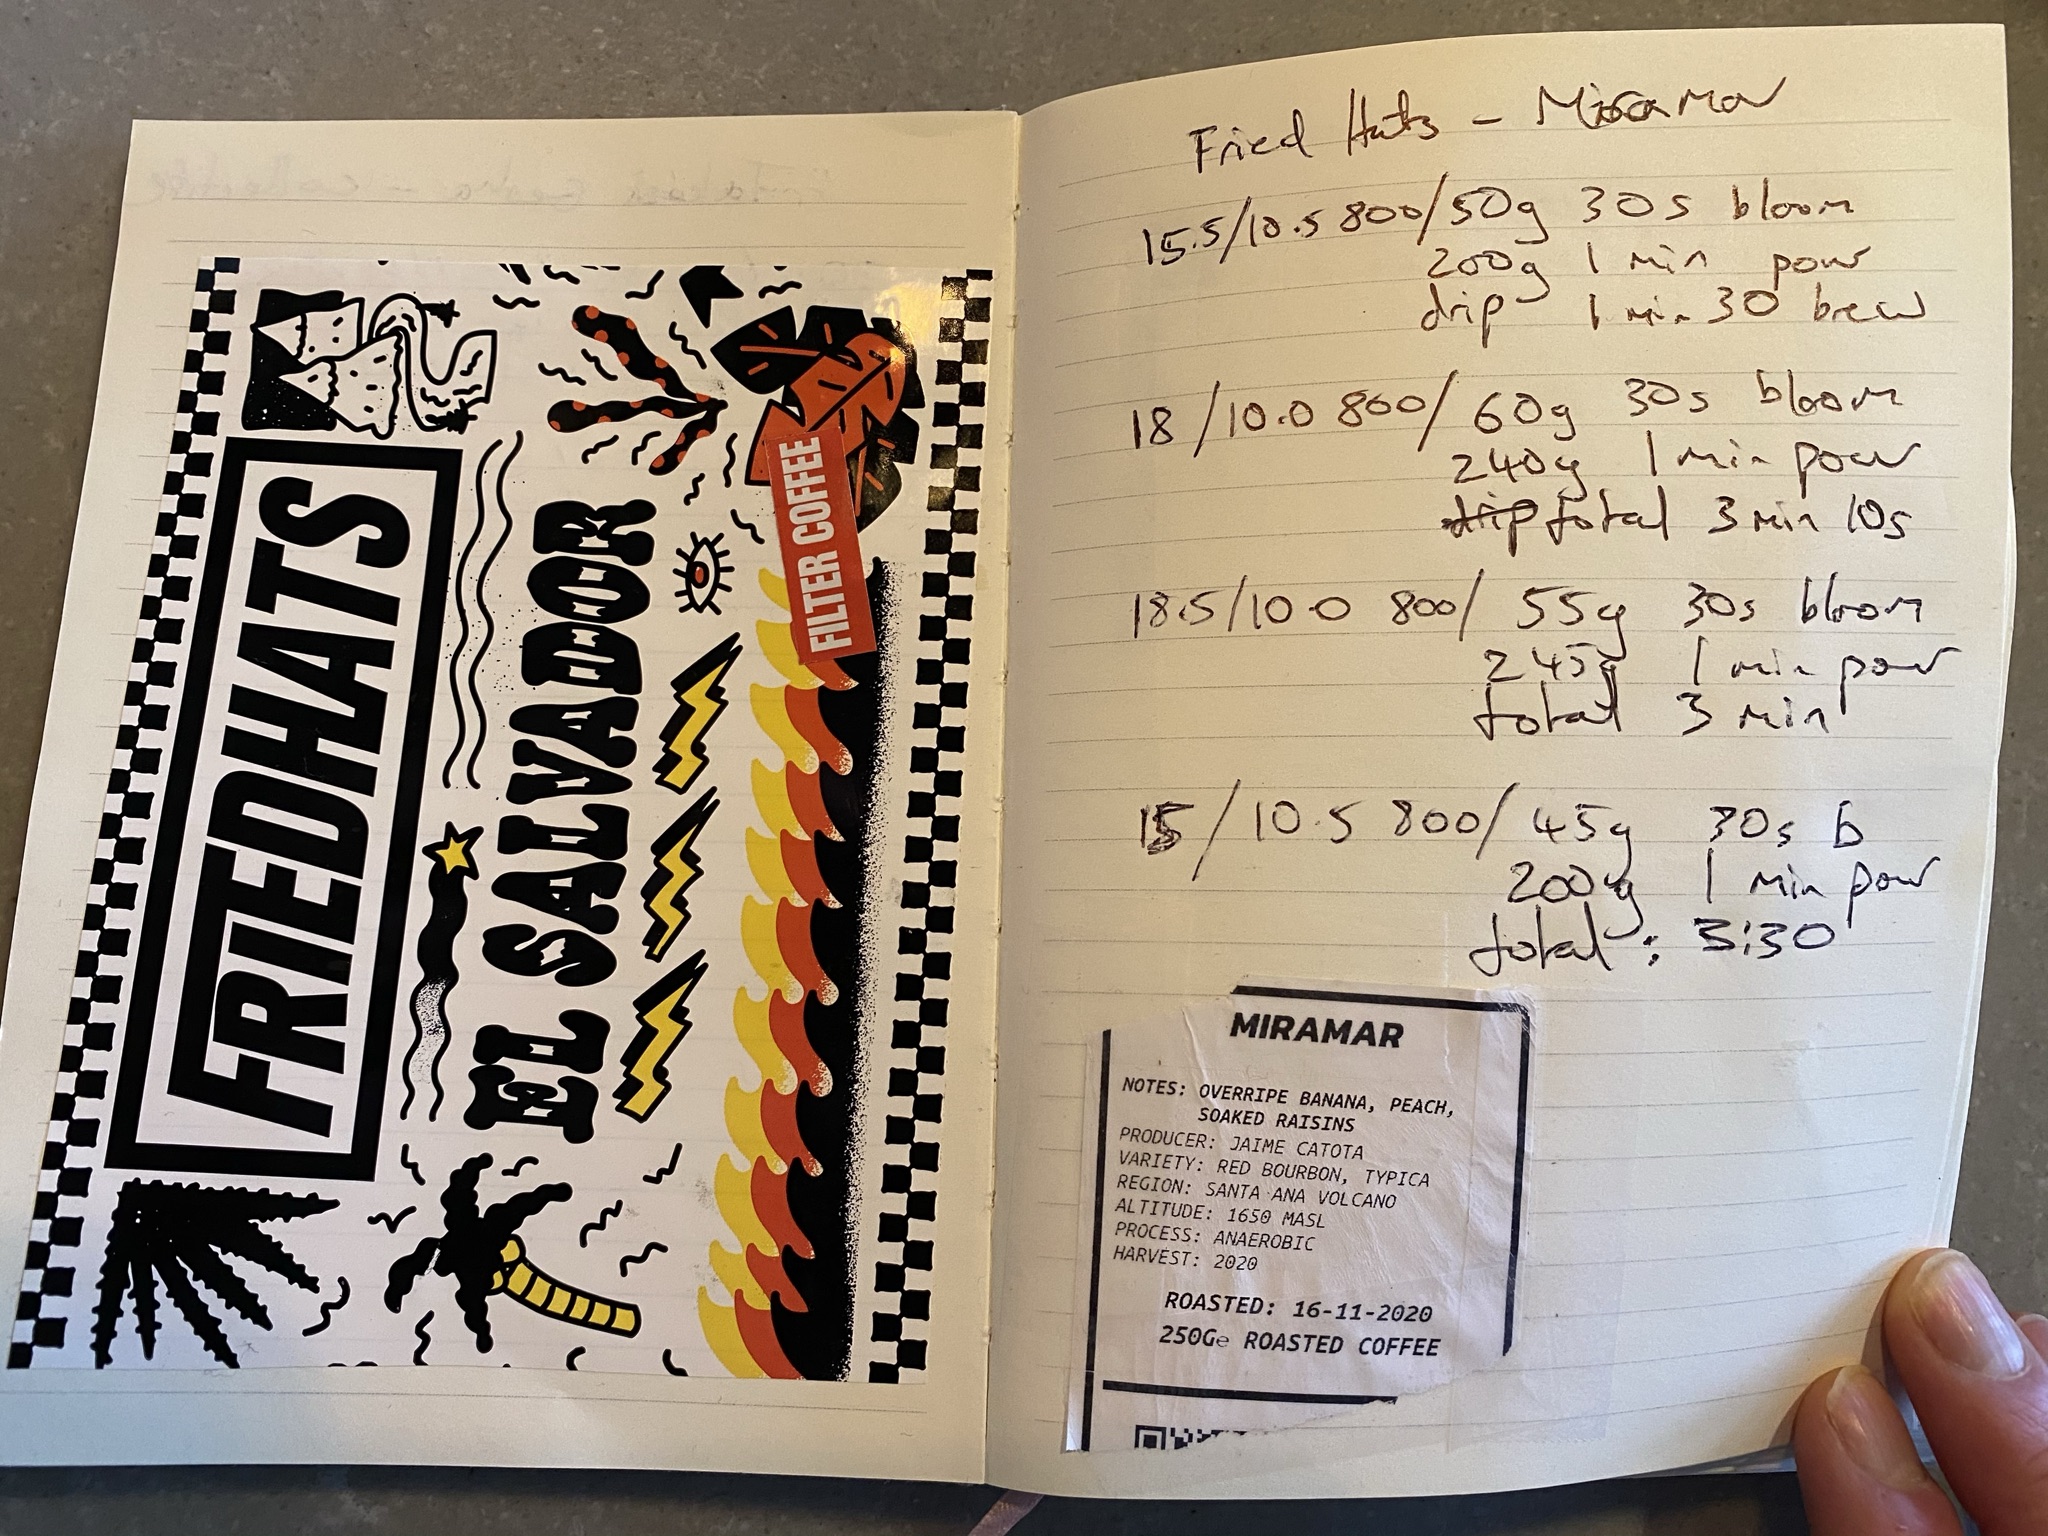 FRIEDHATS
EL SALVADOR
FILTER COFFEE
Fried Hats - Miramar
15.5/10.5 800/50g 30s bloom
200g 1 min pour
drip 1 min 30 brew
18/10.0 800/60g 30s bloom
240g 1 min pour
drip total 3 min 10s
18.5/10.0 800/55g 30s bloom
245g 1 min pour
total 3 min
15/10.5 800/45g 30s b
200g 1 min pour
total: 3:30
MIRAMAR
NOTES: OVERRIPE BANANA, PEACH,
SOAKED RAISINS
PRODUCER: JAIME CATOTA
VARIETY: RED BOURBON, TYPICA
REGION: SANTA ANA VOLCANO
ALTITUDE: 1650 MASL
PROCESS: ANAEROBIC
HARVEST: 2020
ROASTED: 16-11-2020
250G℮ ROASTED COFFEE